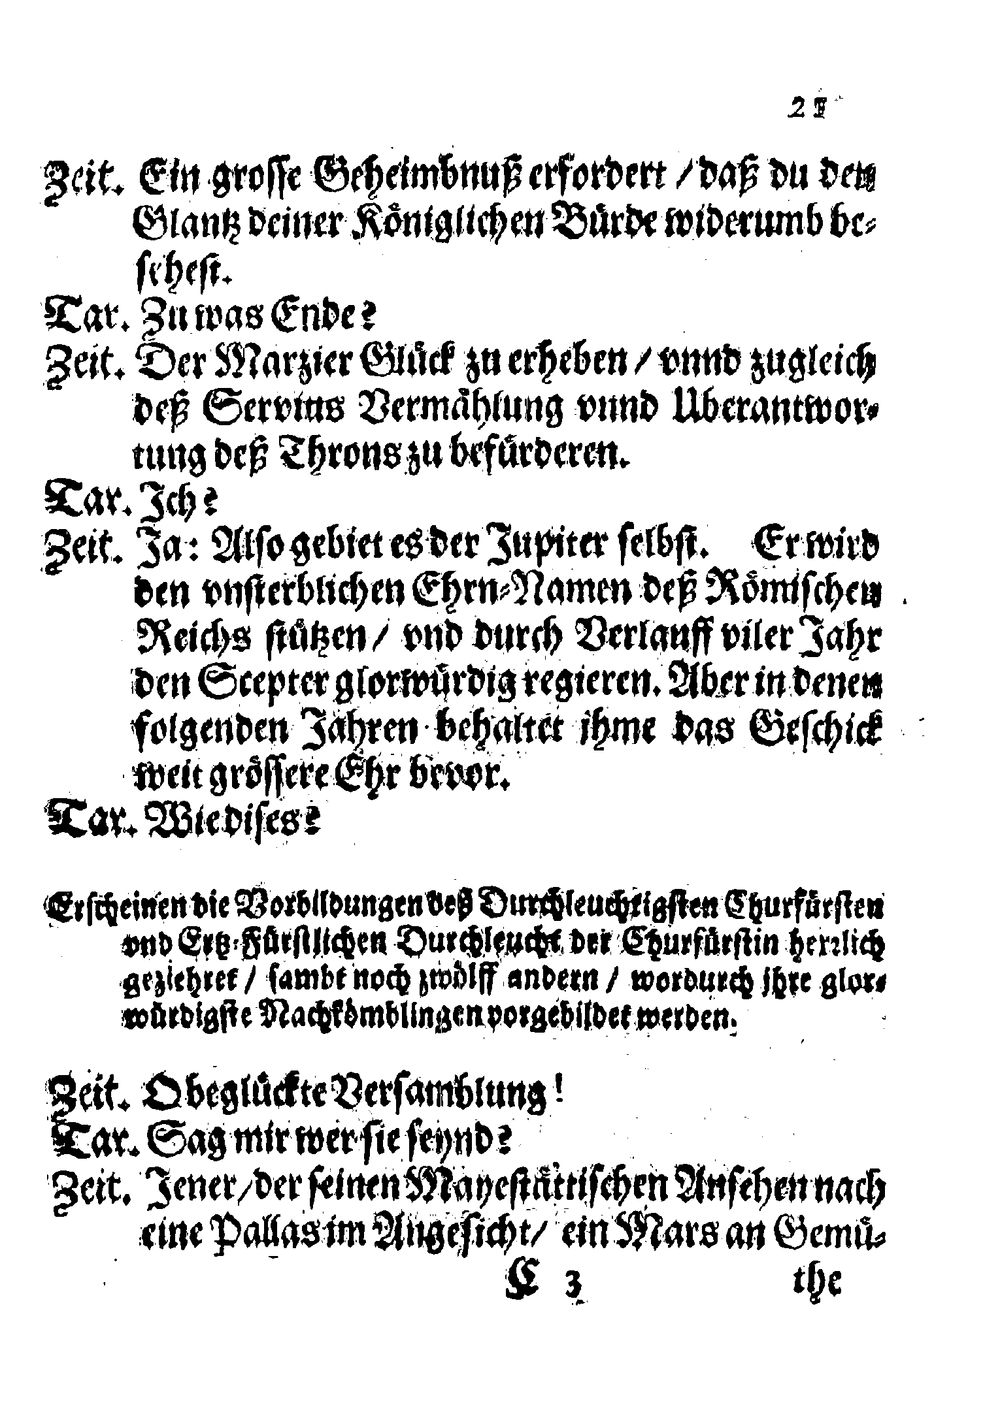 21
Zeit. Ein grosse Geheimbnuß erfordert / daß du den
Glantz deiner Königlichen Bürde widerumb be-
sehest.
Tar. Zu was Ende?
Zeit. Der Marzier Glück zu erheben / vnnd zugleich
deß Servius Vermählung vnnd Uberantwor-
tung deß Throns zu befürderen.
Tar. Ich?
Zeit. Ja: Also gebiet es der Jupiter selbst. Er wird
den vnsterblichen Ehrn-Namen deß Römischen
Reichs stützen / vnd durch Verlauff viler Jahr
den Scepter glorwürdig regieren. Aber in denen
folgenden Jahren behaltet ihme das Geschick
weit grössere Ehr bevor.
Tar. Wie dises?
Erscheinen die Vorbildungen deß Durchleuchtigsten Churfürsten
vnd Ertz-Fürstlichen Durchleucht der Churfürstin herzlich
geziehret / sambt noch zwölff andern / wordurch ihre glor-
würdigste Nachkömblingen vorgebildet werden.
Zeit. O beglückte Versamblung!
Tar. Sag mir wer sie seynd?
Zeit. Jener / der seinen Mayestättischen Ansehen nach
eine Pallas im Angesicht / ein Mars an Gemü-
C 3 the